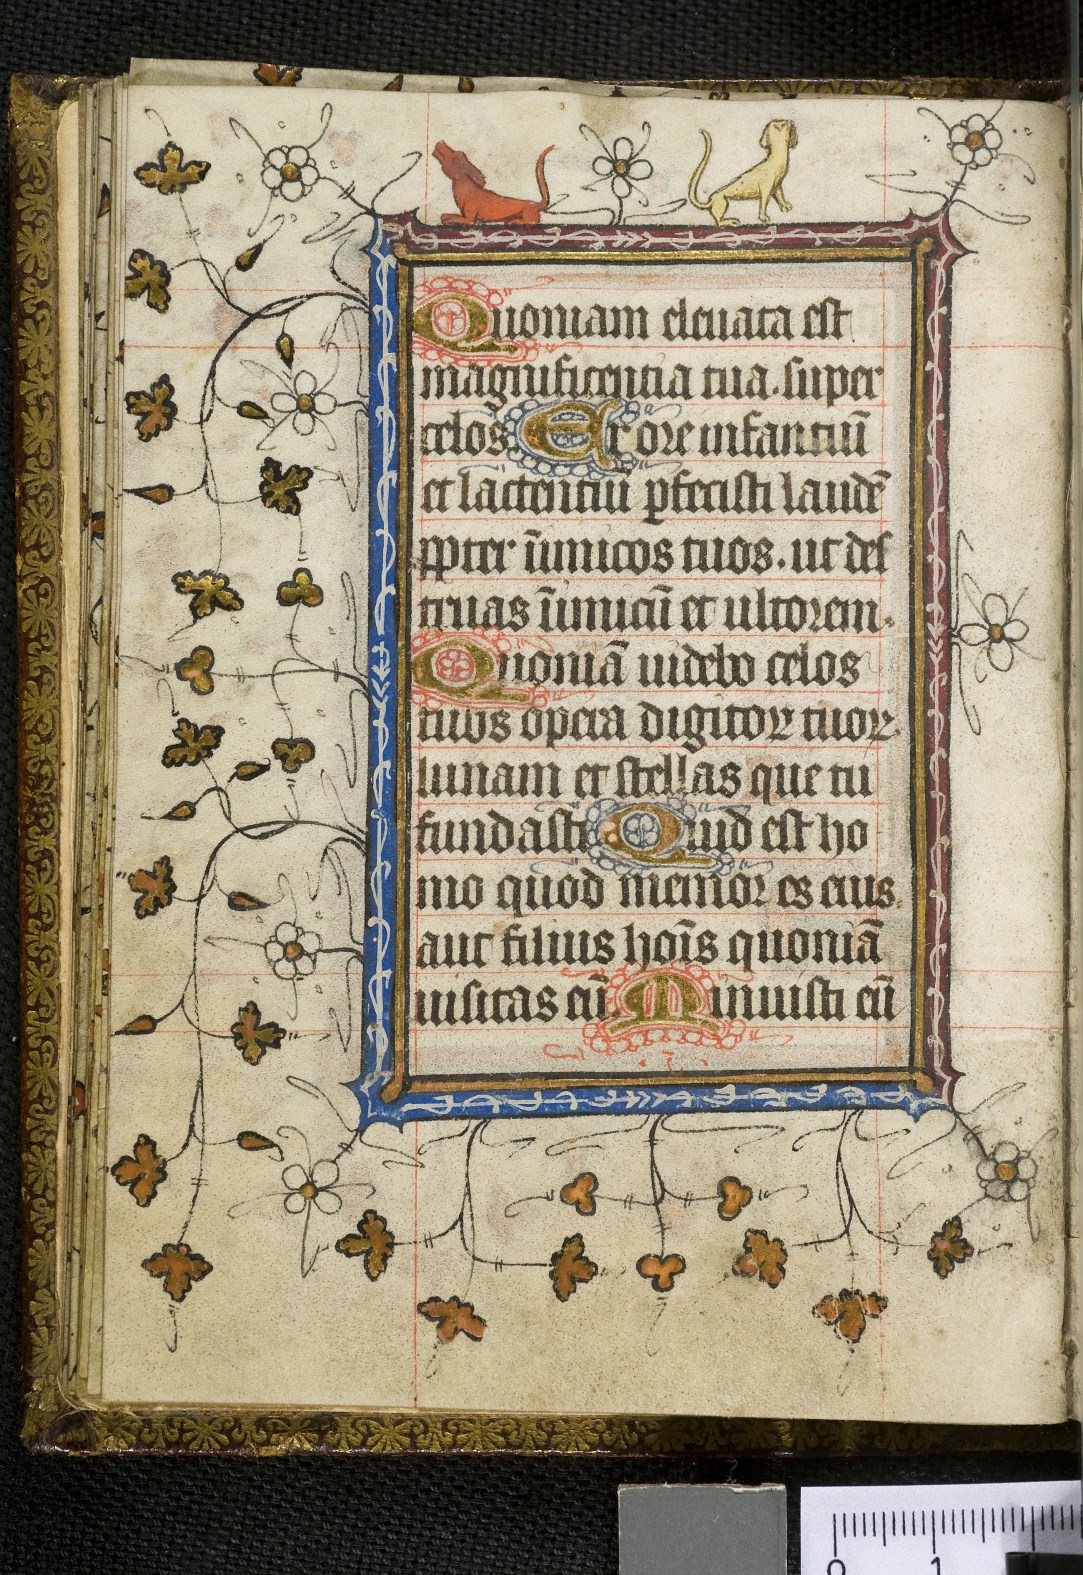 Quoniam eleuata est
magnificentia tua. super
celos Ex ore infantiū
et lactentiū ꝑfecisti laudē
ꝓpter īimicos tuos. ut des
truas īimicū et ultorem.
Quoniā uidebo celos
tuos opera digitoꝝ tuoꝝ.
lunam et stellas que tu
fundasti Quid est ho
mo quod memor es eius.
aut filius hoīs quoniā
uisitas eū. Minuisti eū
0 1